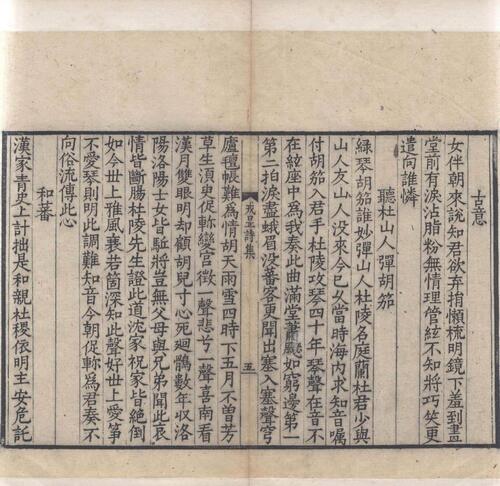 古意
女伴朝來說知君欲弃捐懶梳明鏡下羞到畫
堂前有淚沾脂粉無情理管絃不知將巧笑更
遣向誰憐
聽杜山人彈胡笳
綠琴胡笳誰妙彈山人杜陵名庭蘭杜君少與
山人友山人没來今已久當時海内求知音囑
付胡笳入君手杜陵攻琴四十年琴聲在音不
在絃座中爲我奏此曲滿堂蕭颼如窮邊第一
第二拍淚盡蛾眉没蕃客更聞出塞入塞聲穹
戎昱詩集
五
廬氊帳難爲情胡天雨雪四時下五月不曾芳
草生須臾促軫變宫徵一聲悲兮一聲喜南看
漢月雙眼明却顧胡兒寸心死迴鶻數年収洛
陽洛陽士女皆駈將豈無父母與兄弟聞此哀
情皆斷腸杜陵先生證此道沈家祝家皆絶倒
如今世上雅風衰若箇深知此聲好世上愛筝
不愛琴則明此調難知音今朝促軫爲君奏不
向俗流傳此心
和蕃
漢家青史上計拙是和親社稷依明主安危託